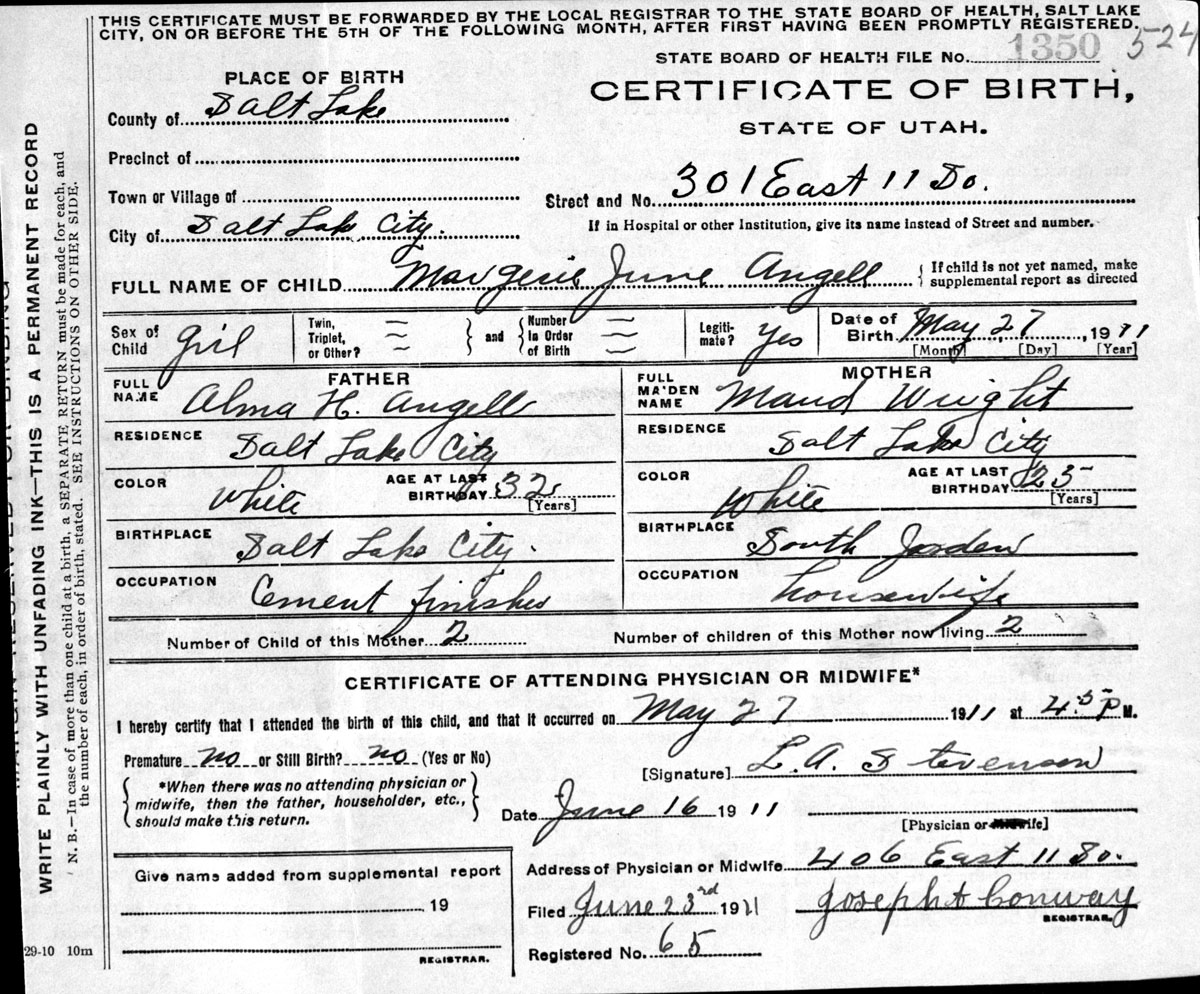 THIS CERTIFICATE MUST BE FORWARDED BY THE LOCAL REGISTRAR TO THE STATE BOARD OF HEALTH, SALT LAKE
CITY, ON OR BEFORE THE 5TH OF THE FOLLOWING MONTH, AFTER FIRST HAVING BEEN PROMPTLY REGISTERED.
524
STATE BOARD OF HEALTH FILE No. 1350
PLACE OF BIRTH
CERTIFICATE OF BIRTH,
STATE OF UTAH.
County of Salt Lake
Precinct of
Town or Village of
Street and No. 301 East 11 So.
City of Salt Lake City.
If in Hospital or other Institution, give its name instead of Street and number.
FULL NAME OF CHILD Margerie June Angell
If child is not yet named, make
supplemental report as directed
Sex of Child Girl
Twin, Triplet, or Other?
and
Number in Order of Birth
Legiti- mate? Yes
Date of Birth May 27, 1911
[Month] [Day] [Year]
FATHER
MOTHER
FULL NAME Alma H. Angell
FULL MAIDEN NAME Maud Wright
RESIDENCE Salt Lake City
RESIDENCE Salt Lake City
COLOR White AGE AT LAST BIRTHDAY 32 [Years]
COLOR White AGE AT LAST BIRTHDAY 25 [Years]
BIRTHPLACE Salt Lake City.
BIRTHPLACE South Jorden
OCCUPATION Cement finisher
OCCUPATION housewife
Number of Child of this Mother 2
Number of children of this Mother now living 2
CERTIFICATE OF ATTENDING PHYSICIAN OR MIDWIFE*
I hereby certify that I attended the birth of this child, and that it occurred on May 27 1911 at 4:5 P M.
Premature no or Still Birth? no (Yes or No)
[Signature] L. A. Stevenson
*When there was no attending physician or
midwife, then the father, householder, etc.,
should make this return.
Date June 16 1911
[Physician or Midwife]
Give name added from supplemental report
19
REGISTRAR.
Address of Physician or Midwife 406 East 11 So.
Filed June 23rd 1911 Joseph H Conway
REGISTRAR.
Registered No. 65
29-10 10m
WRITE PLAINLY WITH UNFADING INK—THIS IS A PERMANENT RECORD
N. B.—In case of more than one child at a birth, a SEPARATE RETURN must be made for each, and
the number of each, in order of birth, stated. SEE INSTRUCTIONS ON OTHER SIDE.